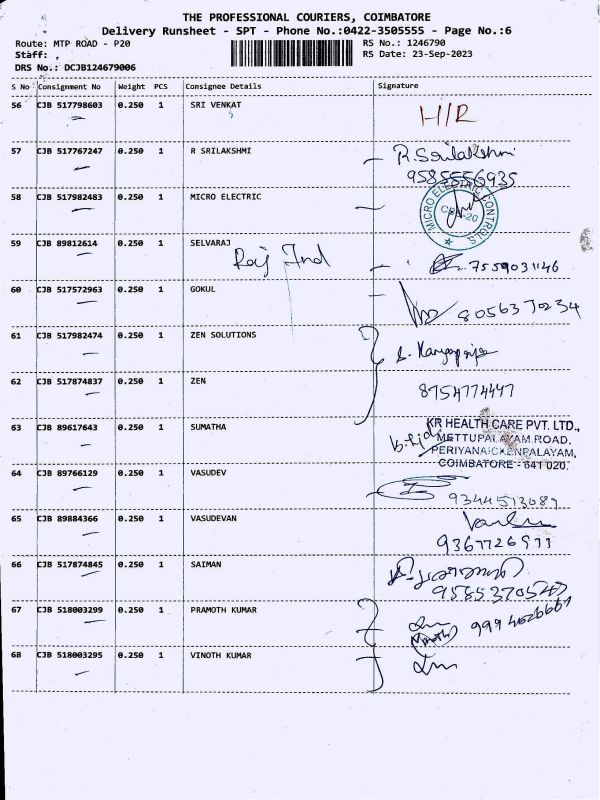 THE PROFESSIONAL COURIERS, COIMBATORE
Delivery Runsheet - SPT - Phone No.:0422-3505555 - Page No.:6
Route: MTP ROAD - P20 RS No.: 1246790
Staff: , RS Date: 23-Sep-2023
DRS No.: DCJB124679006
S No Consignment No Weight PCS Consignee Details Signature
56 CJB 517798603 0.250 1 SRI VENKAT H/R
57 CJB 517767247 0.250 1 R SRILAKSHMI R. Srilakshmi
9585556935
58 CJB 517982483 0.250 1 MICRO ELECTRIC
MICRO ELECTRIC CONTROLS
59 CJB 89812614 0.250 1 SELVARAJ
Raj Ind 7559031146
60 CJB 517572963 0.250 1 GOKUL
8056370234
61 CJB 517982474 0.250 1 ZEN SOLUTIONS
62 CJB 517874837 0.250 1 ZEN 8754774447
63 CJB 89617643 0.250 1 SUMATHA KR HEALTH CARE PVT. LTD.,
METTUPALAYAM ROAD,
PERIYANAICKENPALAYAM,
COIMBATORE - 641 020.
64 CJB 89766129 0.250 1 VASUDEV
9344513089
65 CJB 89884366 0.250 1 VASUDEVAN
66 CJB 517874845 0.250 1 SAIMAN
67 CJB 518003299 0.250 1 PRAMOTH KUMAR
68 CJB 518003295 0.250 1 VINOTH KUMAR